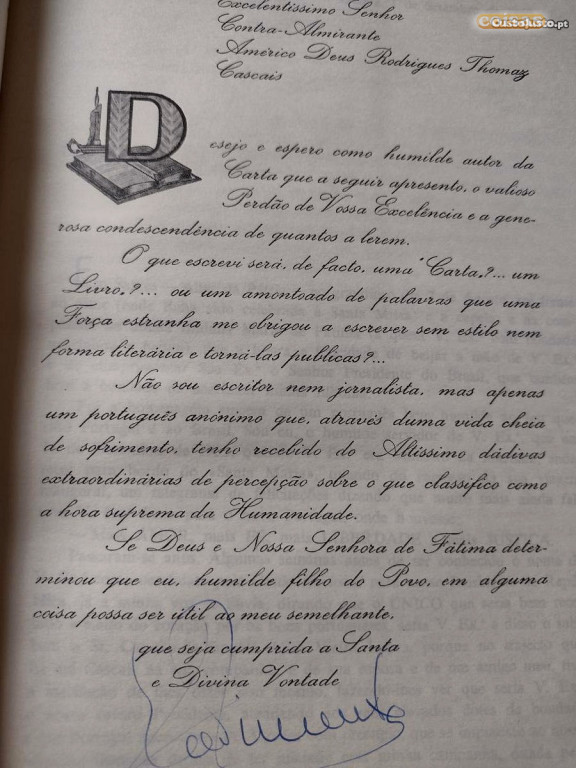 Excelentíssimo Senhor
Contra-Almirante
Américo Deus Rodrigues Thomaz
Cascais
coisas
CustoJusto.pt
Desejo e espero como humilde autor da
Carta que a seguir apresento, o valioso
Perdão de Vossa Excelência e a gene-
rosa condescendência de quantos a lerem.
O que escrevi será, de facto, uma "Carta,?... um
Livro,?... ou um amontoado de palavras que uma
Força estranha me obrigou a escrever sem estilo nem
forma literária e torná-las publicas?...
Não sou escritor nem jornalista, mas apenas
um português anónimo que, através duma vida cheia
de sofrimento, tenho recebido do Altíssimo dádivas
extraordinárias de percepção sobre o que classifico como
a hora suprema da Humanidade.
Se Deus e Nossa Senhora de Fátima deter-
minou que eu, humilde filho do Povo, em alguma
coisa possa ser útil ao meu semelhante,
que seja cumprida a Santa
e Divina Vontade